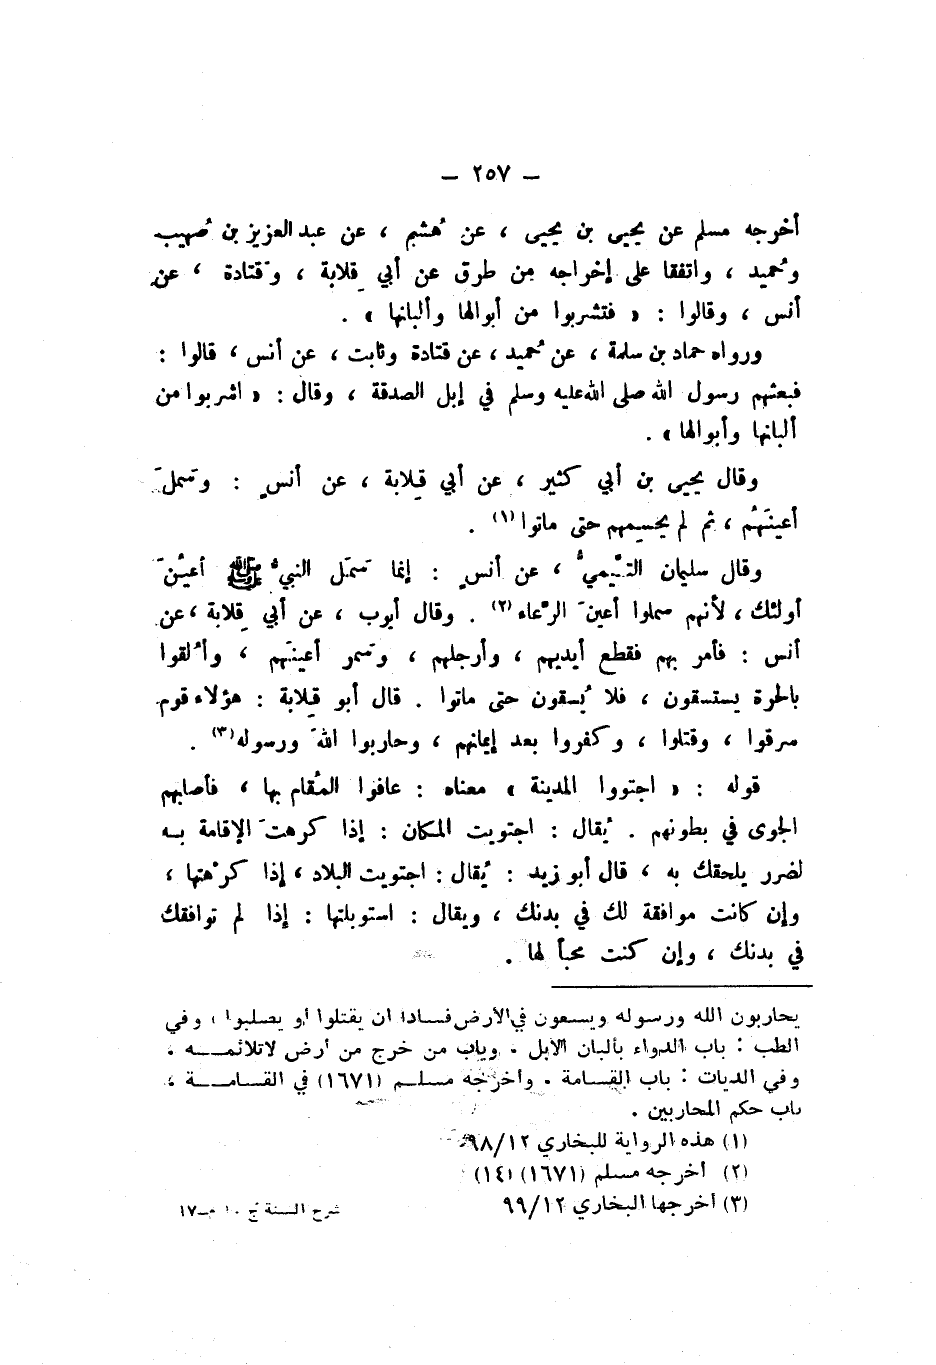 — ٢٥٧ —
أخرجه مسلم عن يحيى بن يحيى ، عن هُشيم ، عن عبد العزيز بن صُهيب
وحُميد ، واتفقا على إخراجه من طرق عن أبي قِلابة ، وقَتادة ، عن
أنس ، وقالوا : « فتشربوا من أبوالها وألبانها » .
ورواه حماد بن سلمة ، عن حُميد ، عن قتادة وثابت ، عن أنس ، قالوا :
فبعثهم رسول الله صلى الله عليه وسلم في إبل الصدقة ، وقال : « اشربوا من
ألبانها وأبوالها » .
وقال يحيى بن أبي كثير ، عن أبي قِلابة ، عن أنسٍ : وسَملَ
أعينَهُم ، ثم لم يحسِمهم حتى ماتوا (١) .
وقال سليمان التَّيْميُّ ، عن أنسٍ : إنما سَمَل النبيُّ ﷺ أعيُنَ
أولئك ، لأنهم سملوا أعينَ الرِّعاء (٢) . وقال أيوب ، عن أبي قِلابة ، عن
أنس : فأمر بهم فقطع أيديهم ، وأرجلهم ، وسَمر أعينَهم ، وأُلقوا
بالحرة يستسقون ، فلا يُسقون حتى ماتوا . قال أبو قِلابة : هؤلاء قوم
سرقوا ، وقتلوا ، وكفروا بعد إيمانهم ، وحاربوا اللهَ ورسوله (٣) .
قوله : « اجتووا المدينة » معناه : عافوا المُقام بها ، فأصابهم
الجوى في بطونهم . يُقال : اجتويت المكان : إذا كرهتَ الإقامة به
لضرر يلحقك به ، قال أبو زيد : يُقال : اجتويت البلاد ، إذا كرهْتها ،
وإن كانت موافقة لك في بدنك ، ويقال : استوبلتها : إذا لم توافقك
في بدنك ، وإن كنت محباً لها .
يحاربون الله ورسوله ويسعون في الأرض فسادا ان يقتلوا أو يصلبوا ، وفي
الطب : باب الدواء بألبان الابل . وباب من خرج من أرض لاتلائمه .
وفي الديات : باب القسامة . وأخرجه مسلم (١٦٧١) في القسامة ،
باب حكم المحاربين .
(١) هذه الرواية للبخاري ٩٨/١٢
(٢) أخرجه مسلم (١٦٧١) (١٤)
(٣) أخرجها البخاري ٩٩/١٢
شرح السنة ج ١٠ م-١٧